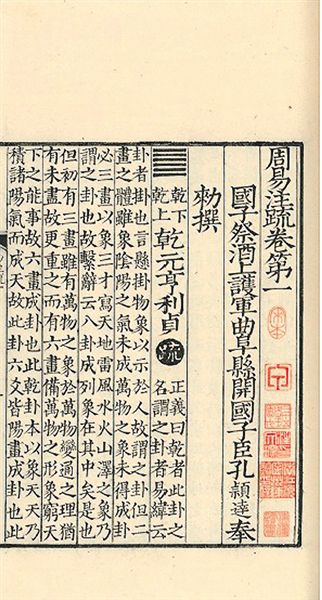 周易注疏卷第一
國子祭酒上護軍曲阜縣開國子臣孔穎達奉
勑撰
䷀
乾下
乾上
乾元亨利貞
疏
正義曰乾者此卦之
名謂之卦者易緯云
卦者掛也言懸掛物象以示於人故謂之卦但二
畫之體雖象陰陽之氣未成萬物之象未得成卦
必三畫以象三才寫天地雷風水火山澤之象乃
謂之卦也故繫辭云八卦成列象在其中矣是也
但初有三畫雖有萬物之象於萬物變通之理猶
有未盡故更重之而有六畫備萬物之形象窮天
下之能事故六畫成卦也此乾卦本以象天天乃
積諸陽氣而成天故此卦六爻皆陽畫成卦也此